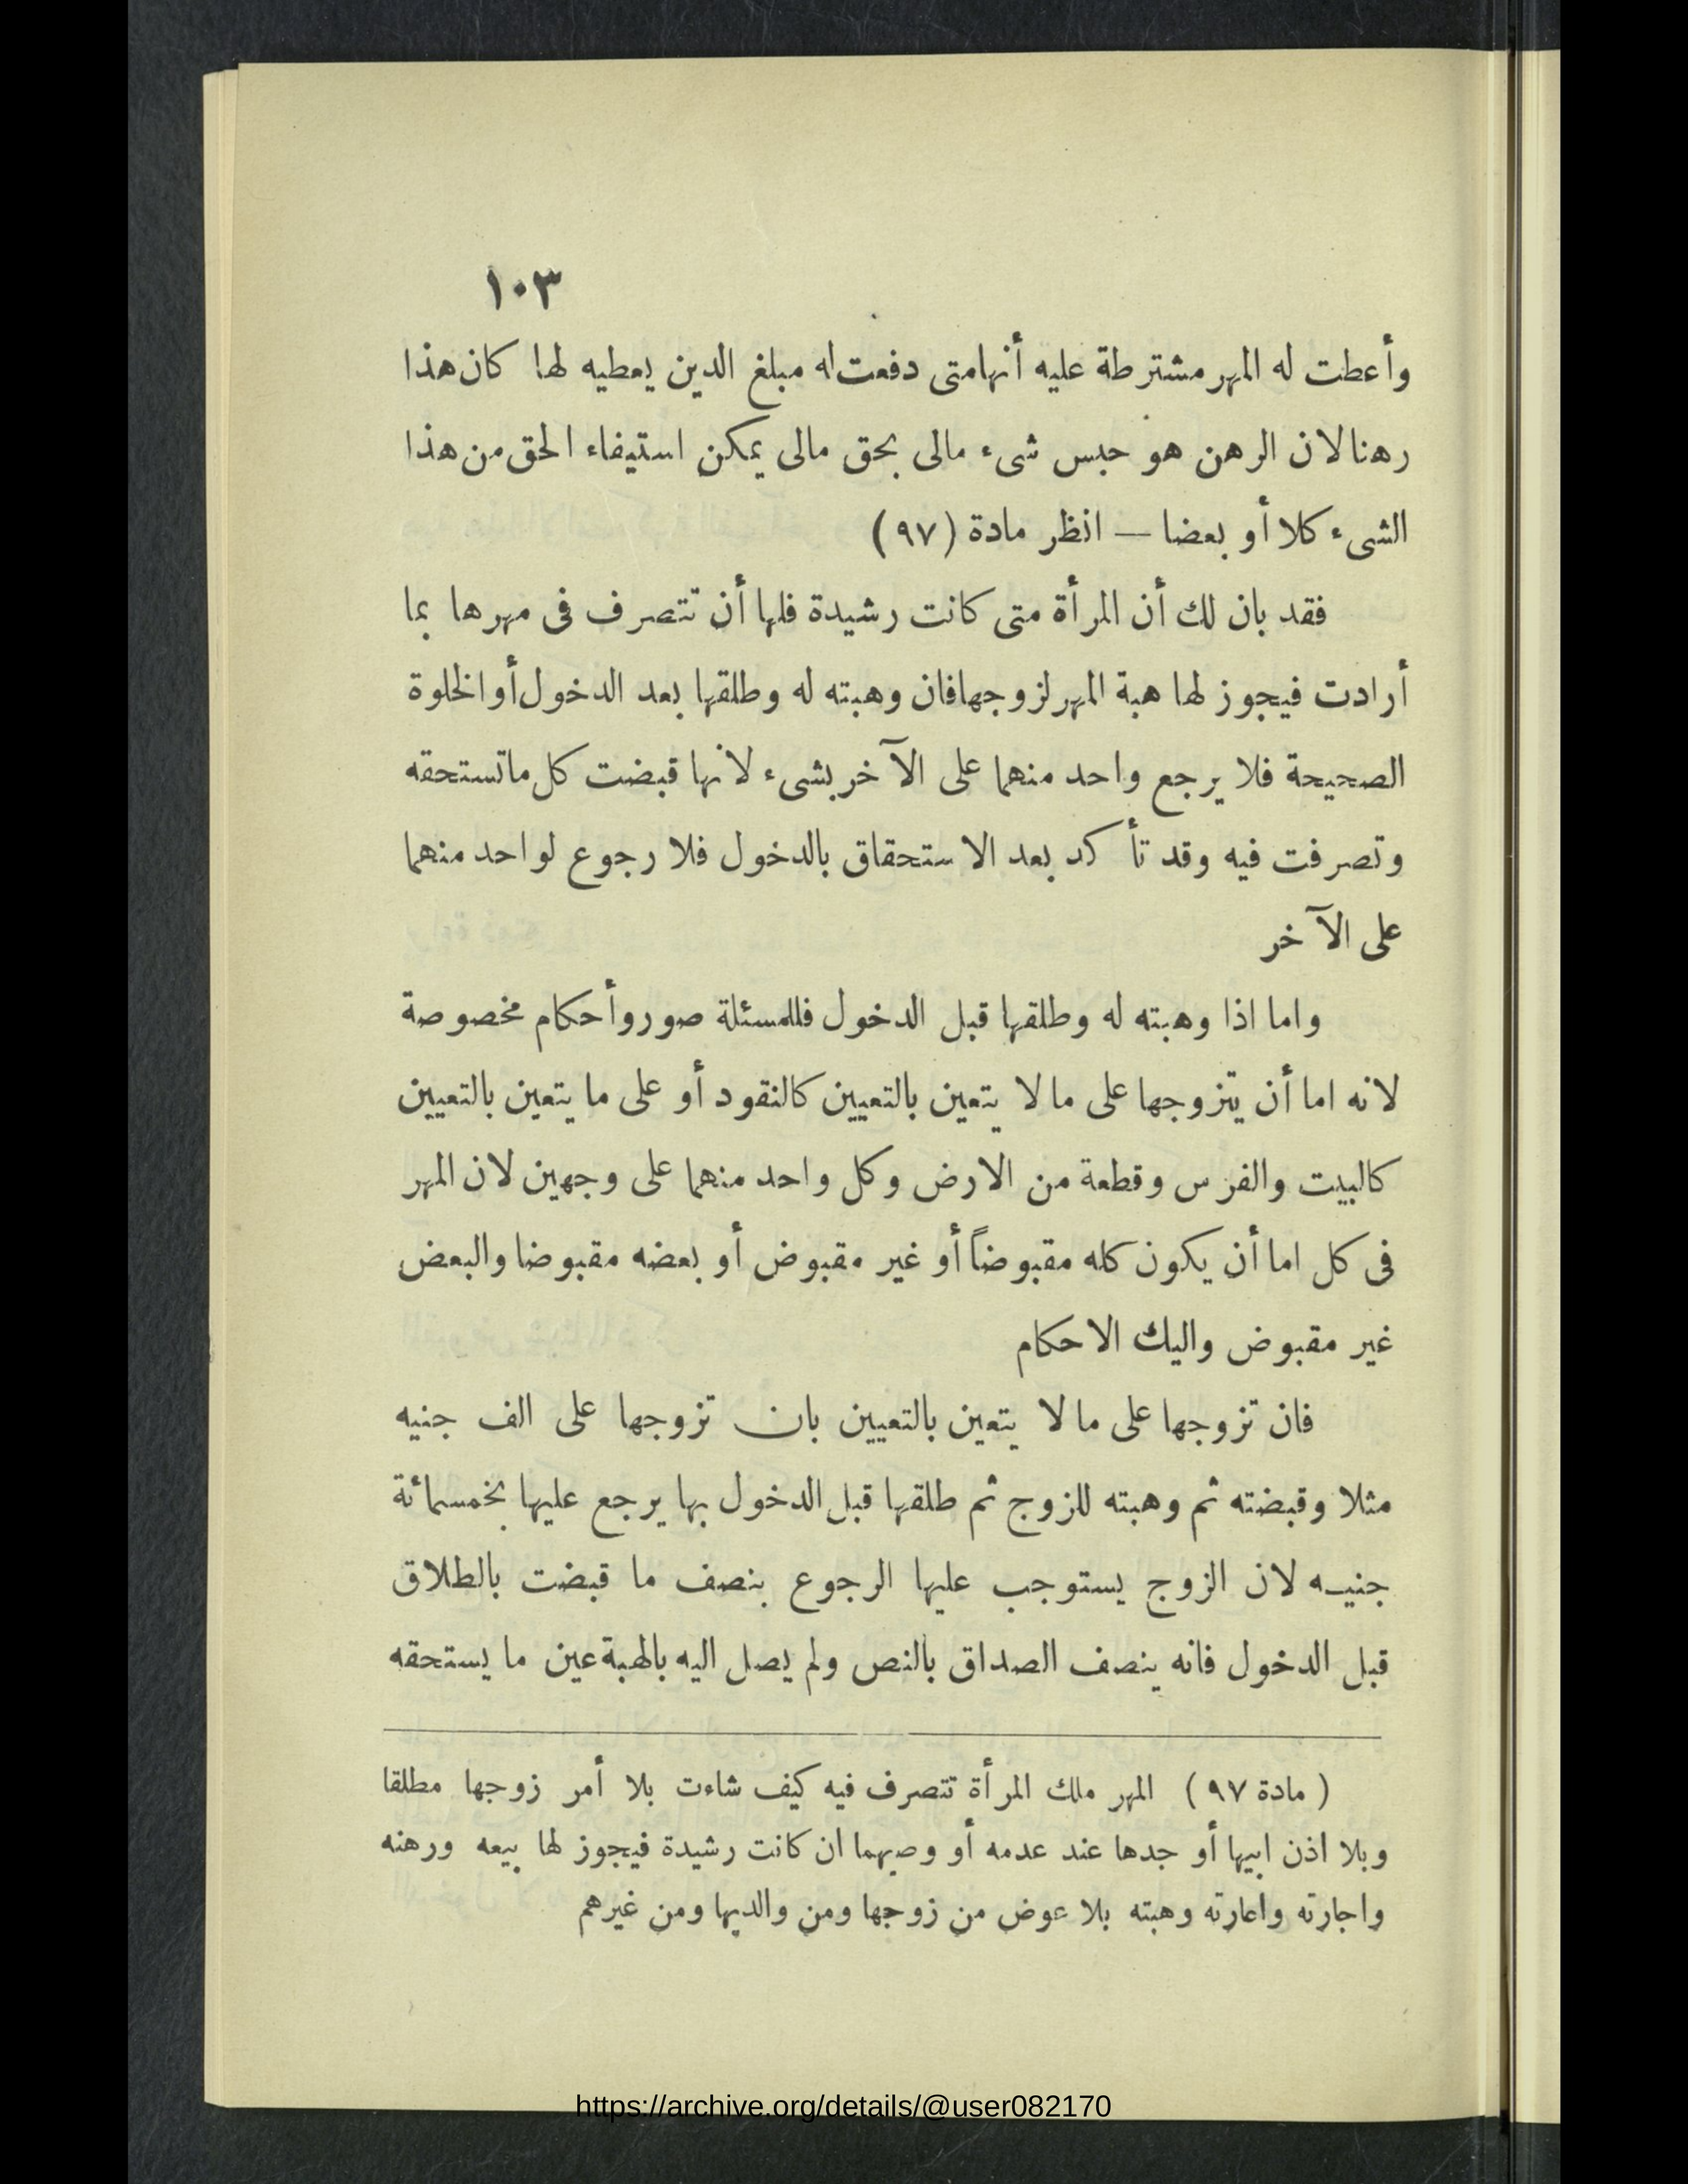 ١٠٣
وأعطت له المهر مشترطة عليه أنها متى دفعت له مبلغ الدين يعطيه لها كان هذا
رهنا لان الرهن هو حبس شىء مالى بحق مالى يمكن استيفاء الحق من هذا
الشىء كلا أو بعضا — انظر مادة (٩٧)
فقد بان لك أن المرأة متى كانت رشيدة فلها أن تتصرف فى مهرها بما
أرادت فيجوز لها هبة المهر لزوجها فان وهبته له وطلقها بعد الدخول أو الخلوة
الصحيحة فلا يرجع واحد منهما على الآخر بشىء لانها قبضت كل ماتستحقه
وتصرفت فيه وقد تأكد بعد الاستحقاق بالدخول فلا رجوع لواحد منهما
على الآخر
واما اذا وهبته له وطلقها قبل الدخول فللمسئلة صور وأحكام مخصوصة
لانه اما أن يتزوجها على ما لا يتعين بالتعيين كالنقود أو على ما يتعين بالتعيين
كالبيت والفرس وقطعة من الارض وكل واحد منهما على وجهين لان المهر
فى كل اما أن يكون كله مقبوضاً أو غير مقبوض أو بعضه مقبوضا والبعض
غير مقبوض واليك الاحكام
فان تزوجها على ما لا يتعين بالتعيين بان تزوجها على الف جنيه
مثلا وقبضته ثم وهبته للزوج ثم طلقها قبل الدخول بها يرجع عليها بخمسمائة
جنيه لان الزوج يستوجب عليها الرجوع بنصف ما قبضت بالطلاق
قبل الدخول فانه ينصف الصداق بالنص ولم يصل اليه بالهبة عين ما يستحقه
( مادة ٩٧ ) المهر ملك المرأة تتصرف فيه كيف شاءت بلا أمر زوجها مطلقا
وبلا اذن ابيها أو جدها عند عدمه أو وصيهما ان كانت رشيدة فيجوز لها بيعه ورهنه
واجارته واعارته وهبته بلا عوض من زوجها ومن والديها ومن غيرهم
https://archive.org/details/@user082170